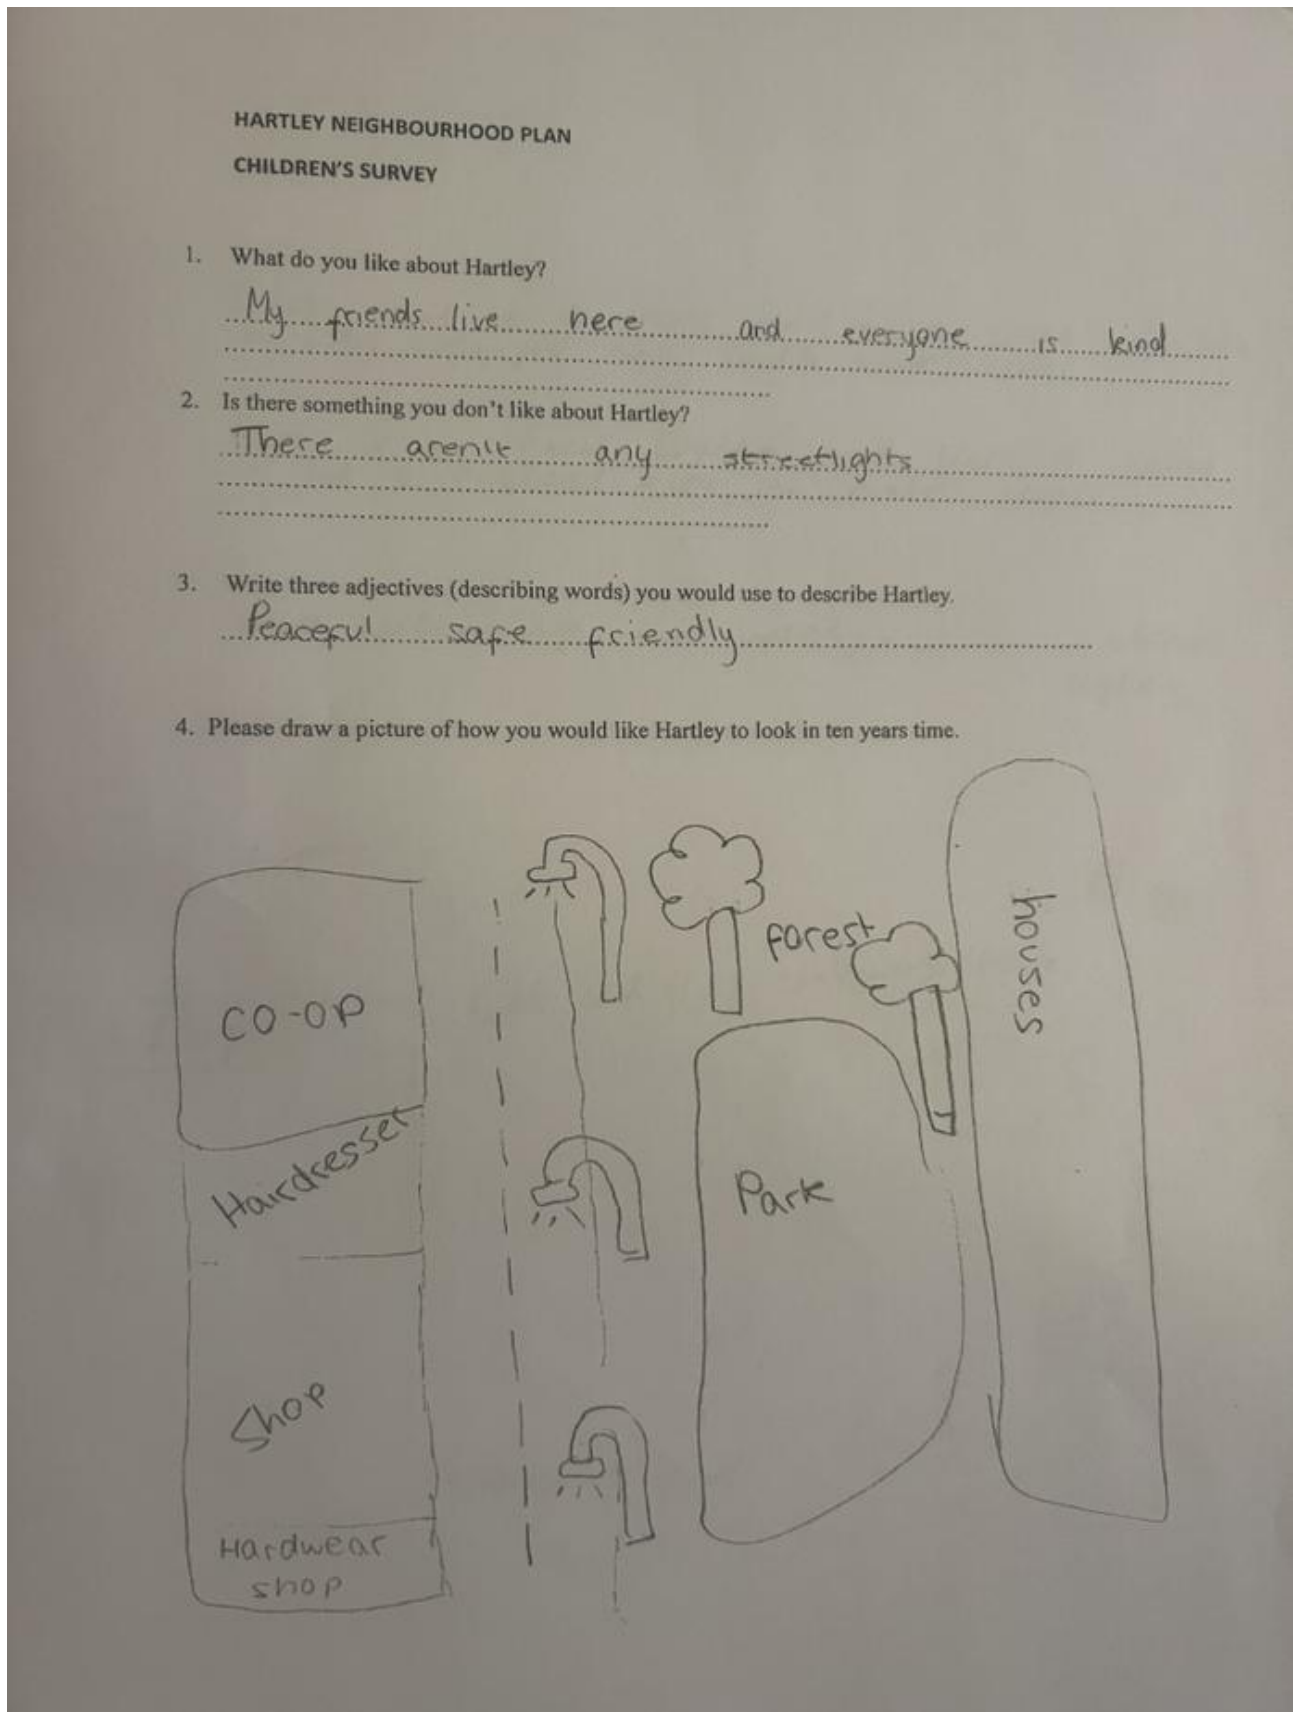 HARTLEY NEIGHBOURHOOD PLAN
CHILDREN'S SURVEY
1. What do you like about Hartley?
My friends live here and everyone is kind
2. Is there something you don't like about Hartley?
There aren't any streetlights
3. Write three adjectives (describing words) you would use to describe Hartley.
Peaceful safe friendly
4. Please draw a picture of how you would like Hartley to look in ten years time.
houses
forest
CO-OP
Hairdresser
Park
Shop
Hardwear
shop